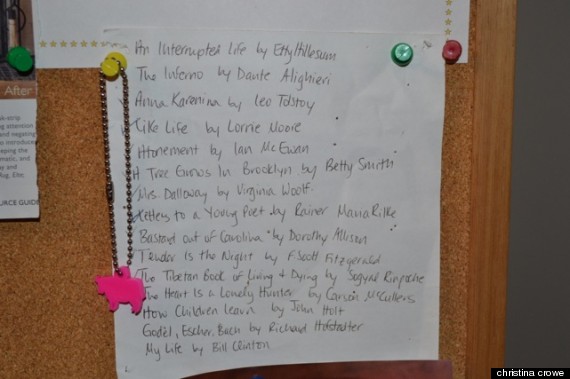 An Interrupted Life by Etty Hillesum
The Inferno by Dante Alighieri
Anna Karenina by Leo Tolstoy
Like Life by Lorrie Moore
Atonement by Ian McEwan
A Tree Grows In Brooklyn by Betty Smith
Mrs. Dalloway by Virginia Woolf
Letters to a Young Poet by Rainer Maria Rilke
Bastard out of Carolina by Dorothy Allison
Tender Is the Night by F. Scott Fitzgerald
The Tibetan Book of Living & Dying by Sogyal Rinpoche
The Heart Is a Lonely Hunter by Carson McCullers
How Children Learn by John Holt
Godel, Escher, Bach by Richard Hofstadter
My Life by Bill Clinton
After
sk-strip
ng attention
and negating
eping the
matic, and
OURCE GUID
christina crowe